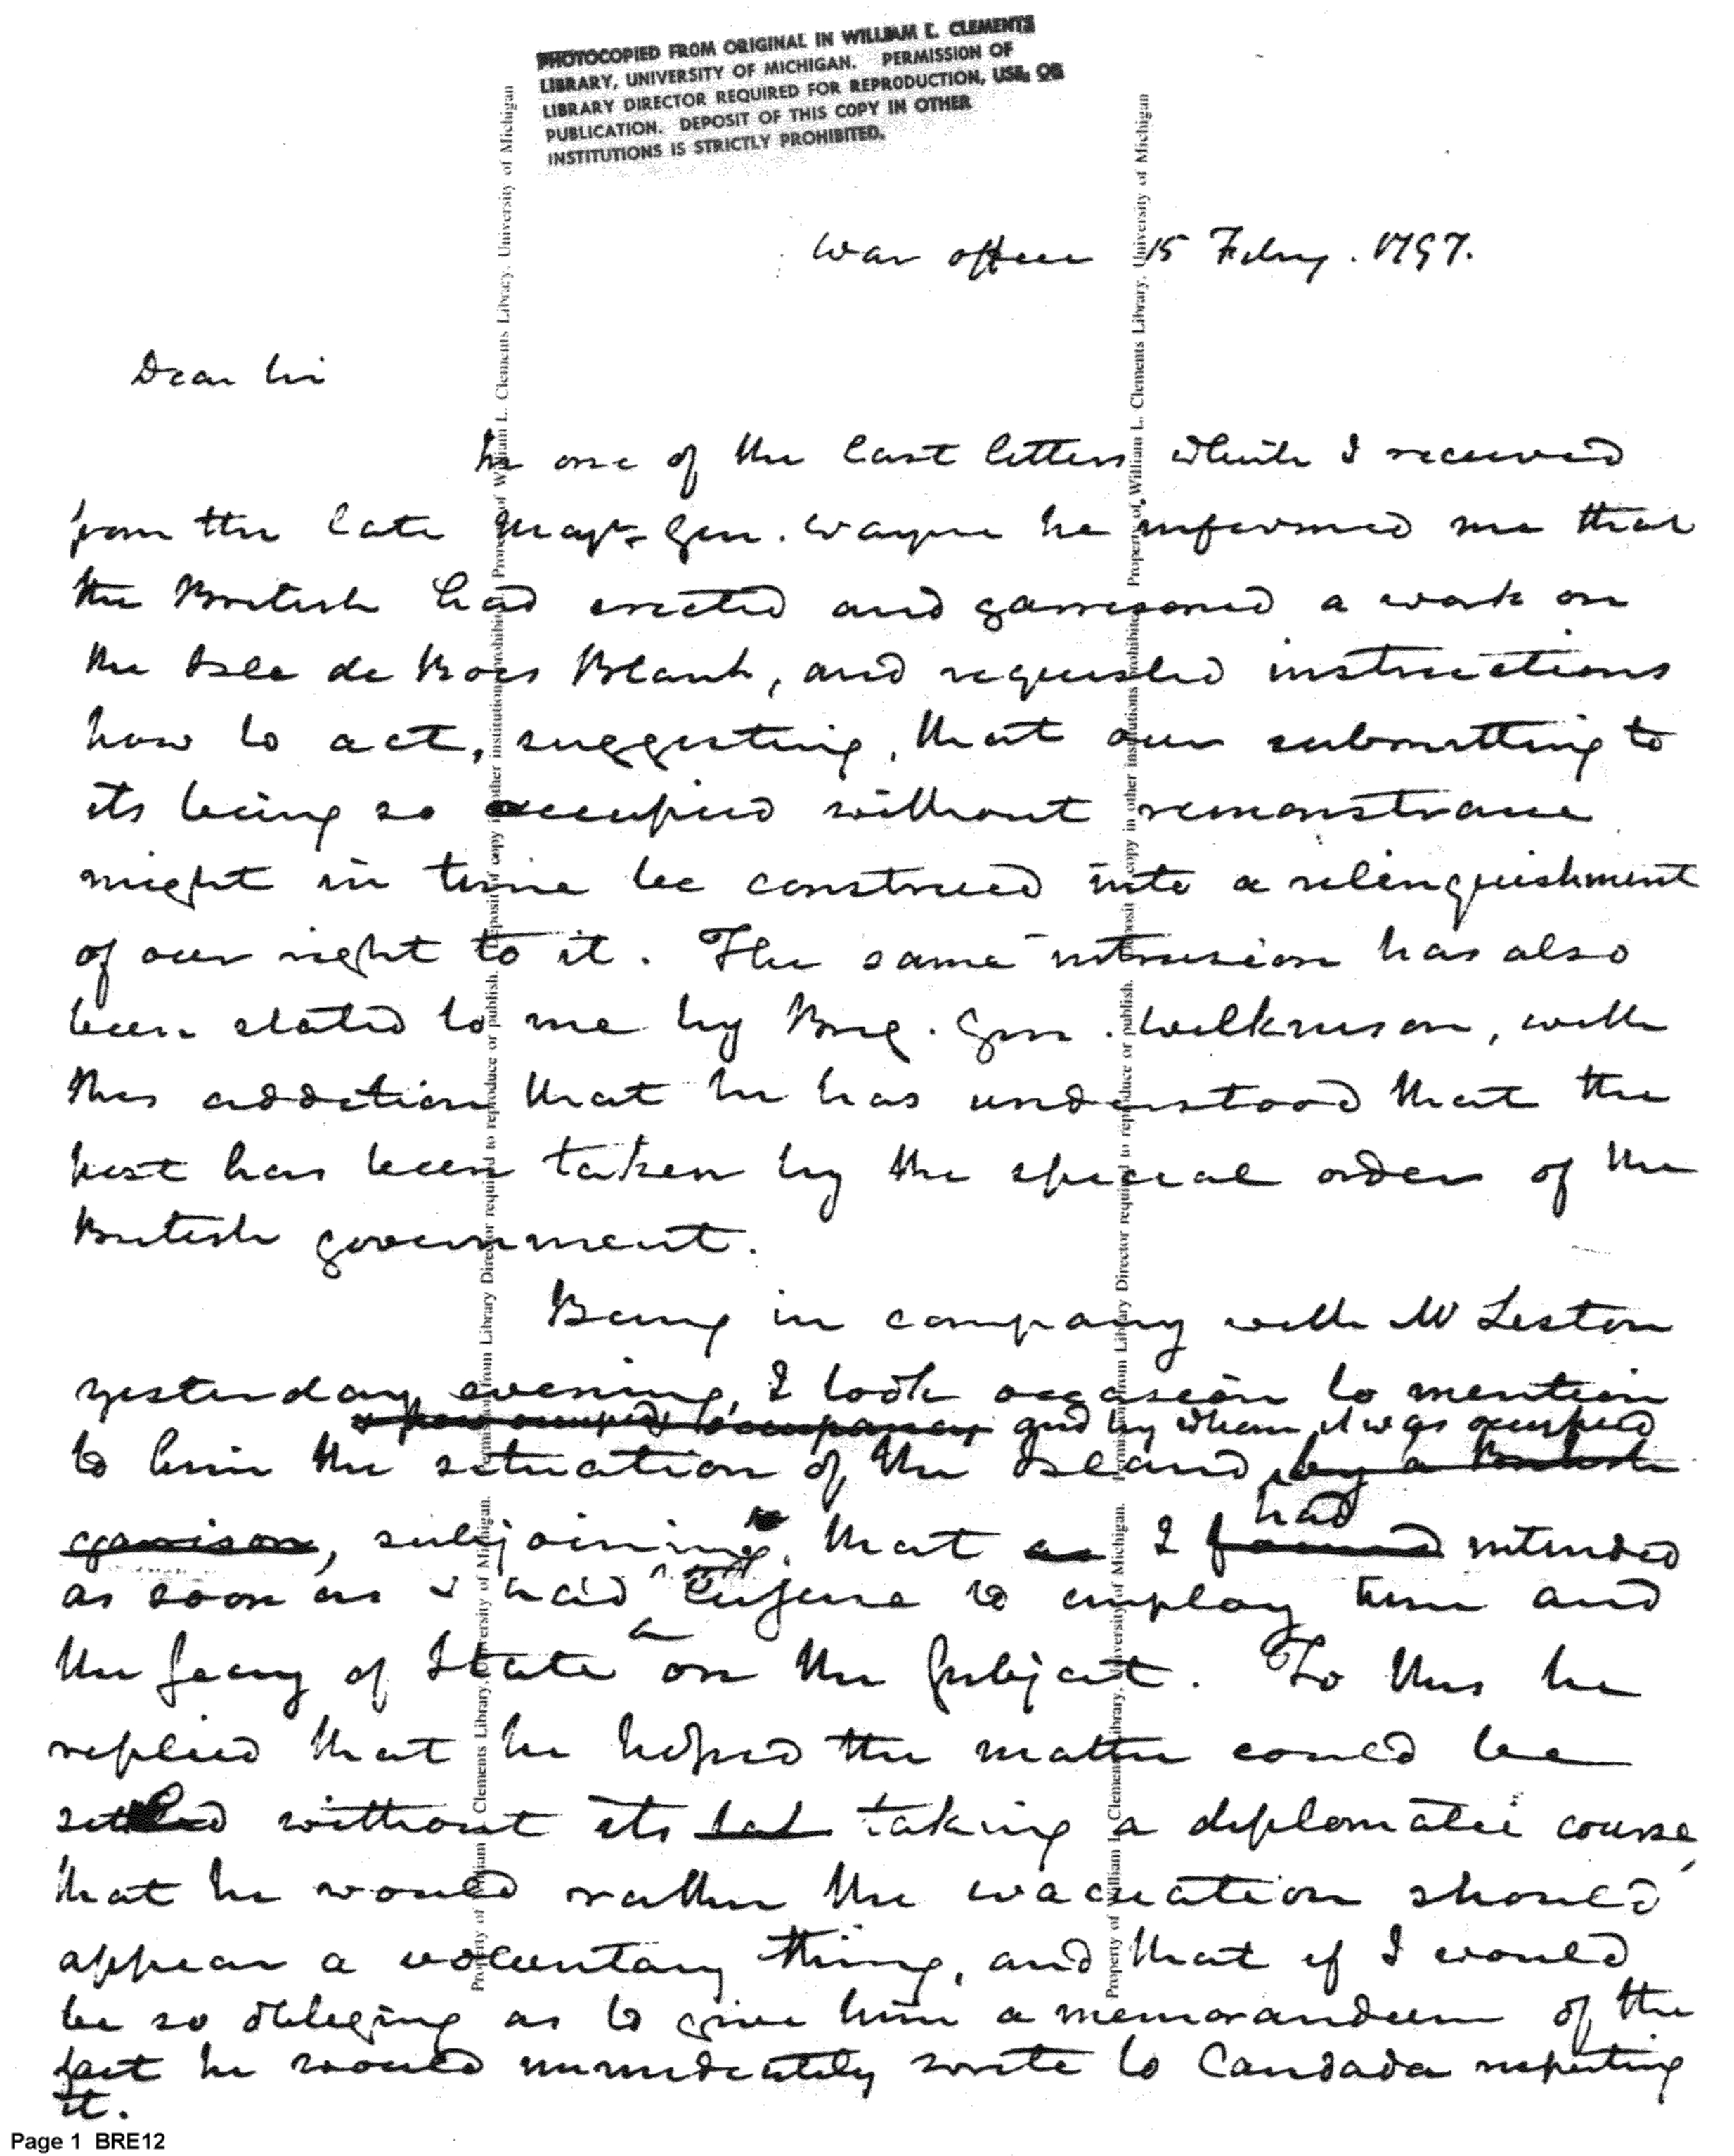 PHOTOCOPIED FROM ORIGINAL IN WILLIAM L. CLEMENTS
LIBRARY, UNIVERSITY OF MICHIGAN. PERMISSION OF
LIBRARY DIRECTOR REQUIRED FOR REPRODUCTION, USE, OR
PUBLICATION. DEPOSIT OF THIS COPY IN OTHER
INSTITUTIONS IS STRICTLY PROHIBITED.
War office 15 Feby. 1797.
Dear Sir
In one of the last letters which I received
from the late Majr. Gen. Wayne he informed me that
the British had erected and garrisoned a work on
the Isle de Bois Blank, and requested instructions
how to act, suggesting, that our submitting to
its being so occupied without remonstrance
might in time be construed into a relinquishment
of our right to it. The same intrusion has also
been stated to me by Brig. Gen. Wilkinson, with
this addition that he has understood that the
post has been taken by the special orders of the
British government.
Being in company with Mr Liston
yesterday evening, I took occasion to mention
and by whom it was occupied
to him the situation of the Island by a British
garrison, subjoining that as I found had intended
as soon as I had leisure to employ him and
the Secy of State on the subject. To this he
replied that he hoped the matter could be
settled without its taking a diplomatic course,
that he would rather the evacuation should
appear a voluntary thing, and that if I would
be so obliging as to give him a memorandum of the
fact he would immediately write to Candada respecting
it.
Page 1 BRE12
Property of William L. Clements Library, University of Michigan. Permission from Library Director required to reproduce or publish. Deposit of copy in other institutions prohibited. Property of William L. Clements Library, University of Michigan
Property of William L. Clements Library, University of Michigan. Permission from Library Director required to reproduce or publish. Deposit of copy in other institutions prohibited. Property of William L. Clements Library, University of Michigan